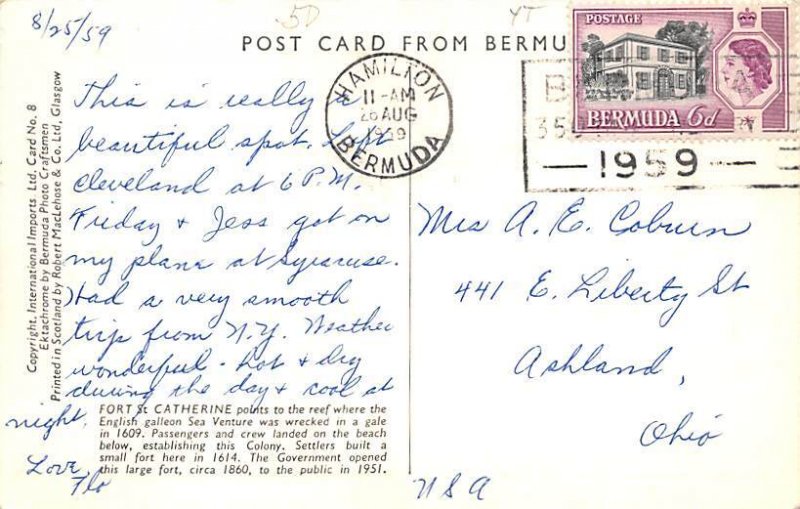 8/25/59
5D
YT
POST CARD FROM BERMU
POSTAGE
BERMUDA 6d
HAMILTON
11-AM
26 AUG
1959
BERMUDA
1959
This is really a
beautiful spot. Left
Cleveland at 6 P.M.
Friday + Jess got on
my plane at Syracuse.
Had a very smooth
trip from N.Y. Weather
wonderful - hot & dry
during the day & cool at
night.
Love,
Flo
Mrs A. E. Coburn
441 E. Liberty St
Ashland,
Ohio
USA
FORT St CATHERINE points to the reef where the
English galleon Sea Venture was wrecked in a gale
in 1609. Passengers and crew landed on the beach
below, establishing this Colony. Settlers built a
small fort here in 1614. The Government opened
this large fort, circa 1860, to the public in 1951.
Copyright, International Imports, Ltd. Card No. 8
Ektachrome by Bermuda Photo Craftsmen
Printed in Scotland by Robert MacLehose & Co. Ltd, Glasgow